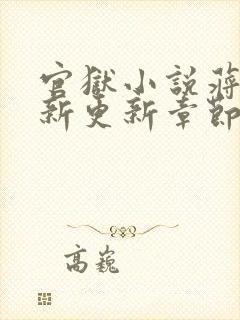 官獄小說蔣
新更新章節
高巍